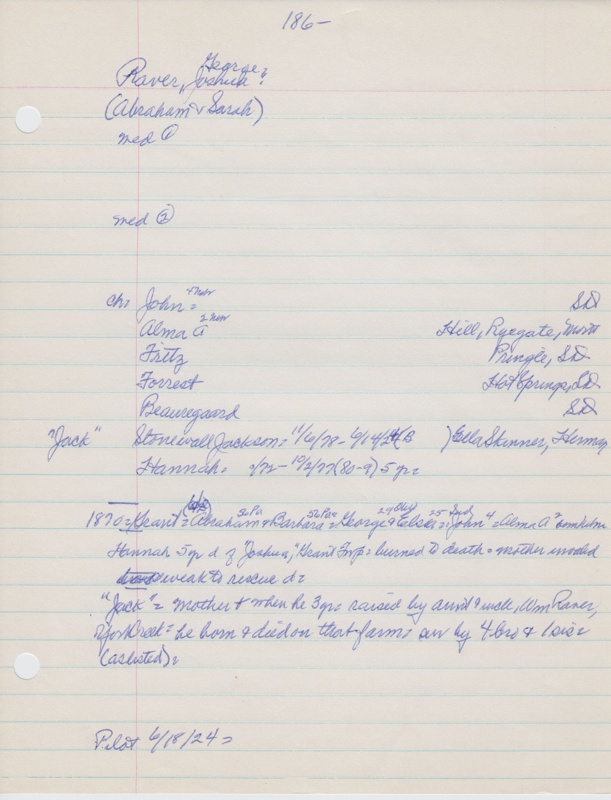 186-
George?
Raver, Joshua?
(Abraham & Sarah)
med ①
med ②
ch: John = 4 now SD
Alma A 2 now Hill, Ryegate, Mont
Fritz Pringle, SD
Forrest Hot Springs, SD
Beauregard SD
"Jack" Stonewall Jackson = 11/6/78 - 6/14/24 (B ) Ella Skinner, Herman
Hannah = /72 - 10/2/77 (80-9) 5 yr =
1870 = Grant = Abraham 56 Pa & Barbara 56 Pa = George 29 & Elsie 25 = John 4 = Alma A 2
Hannah 5 yr d of "Joshua," Grant Twp = burned to death = mother
weak to rescue d =
"Jack" = mother & when he 3 yrs raised by aunt & uncle, Wm Raver,
= he born & died on that farm = sur by 4 bro & 1 sis =
(as listed) =
Pilot 6/18/24 =